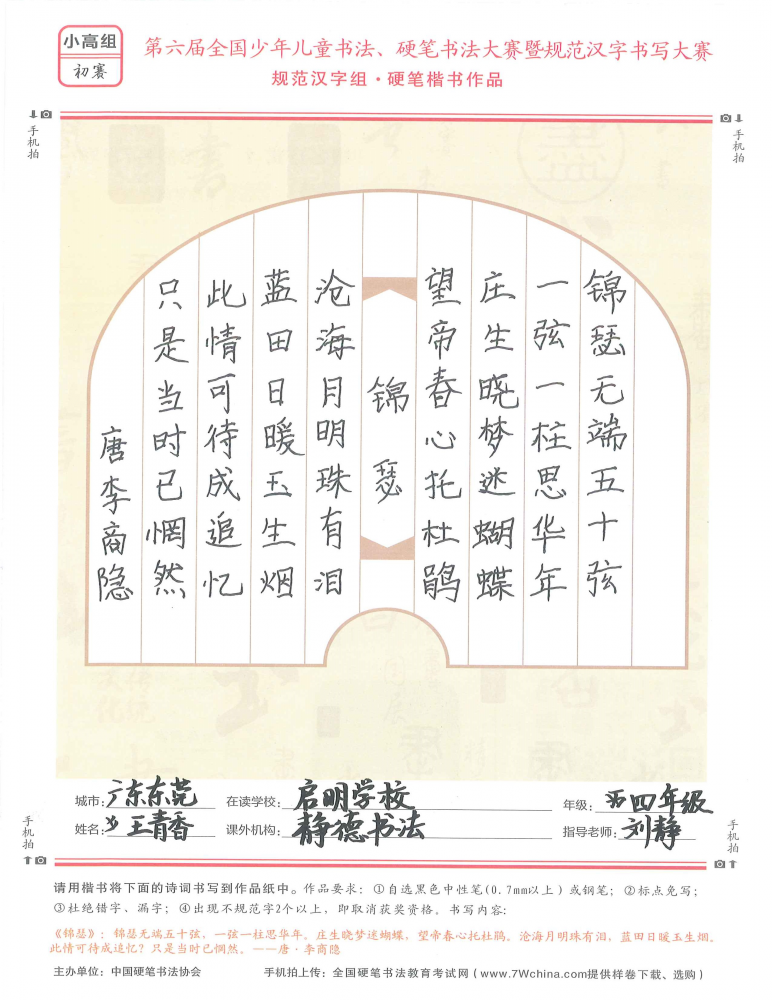 小高组
初赛
第六届全国少年儿童书法、硬笔书法大赛暨规范汉字书写大赛
规范汉字组·硬笔楷书作品
手机拍
手机拍
锦瑟无端五十弦
一弦一柱思华年
庄生晓梦迷蝴蝶
望帝春心托杜鹃
锦瑟
沧海月明珠有泪
蓝田日暖玉生烟
此情可待成追忆
只是当时已惘然
唐李商隐
城市:广东东莞 在读学校:启明学校 年级:四年级
姓名:王青香 课外机构:静德书法 指导老师:刘静
手机拍
手机拍
请用楷书将下面的诗词书写到作品纸中。作品要求:①自选黑色中性笔(0.7mm以上)或钢笔;②标点免写;
③杜绝错字、漏字;④出现不规范字2个以上,即取消获奖资格。书写内容:
《锦瑟》:锦瑟无端五十弦,一弦一柱思华年。庄生晓梦迷蝴蝶,望帝春心托杜鹃。沧海月明珠有泪,蓝田日暖玉生烟。
此情可待成追忆?只是当时已惘然。——唐·李商隐
主办单位:中国硬笔书法协会 手机拍上传:全国硬笔书法教育考试网(www.7Wchina.com提供样卷下载、选购)